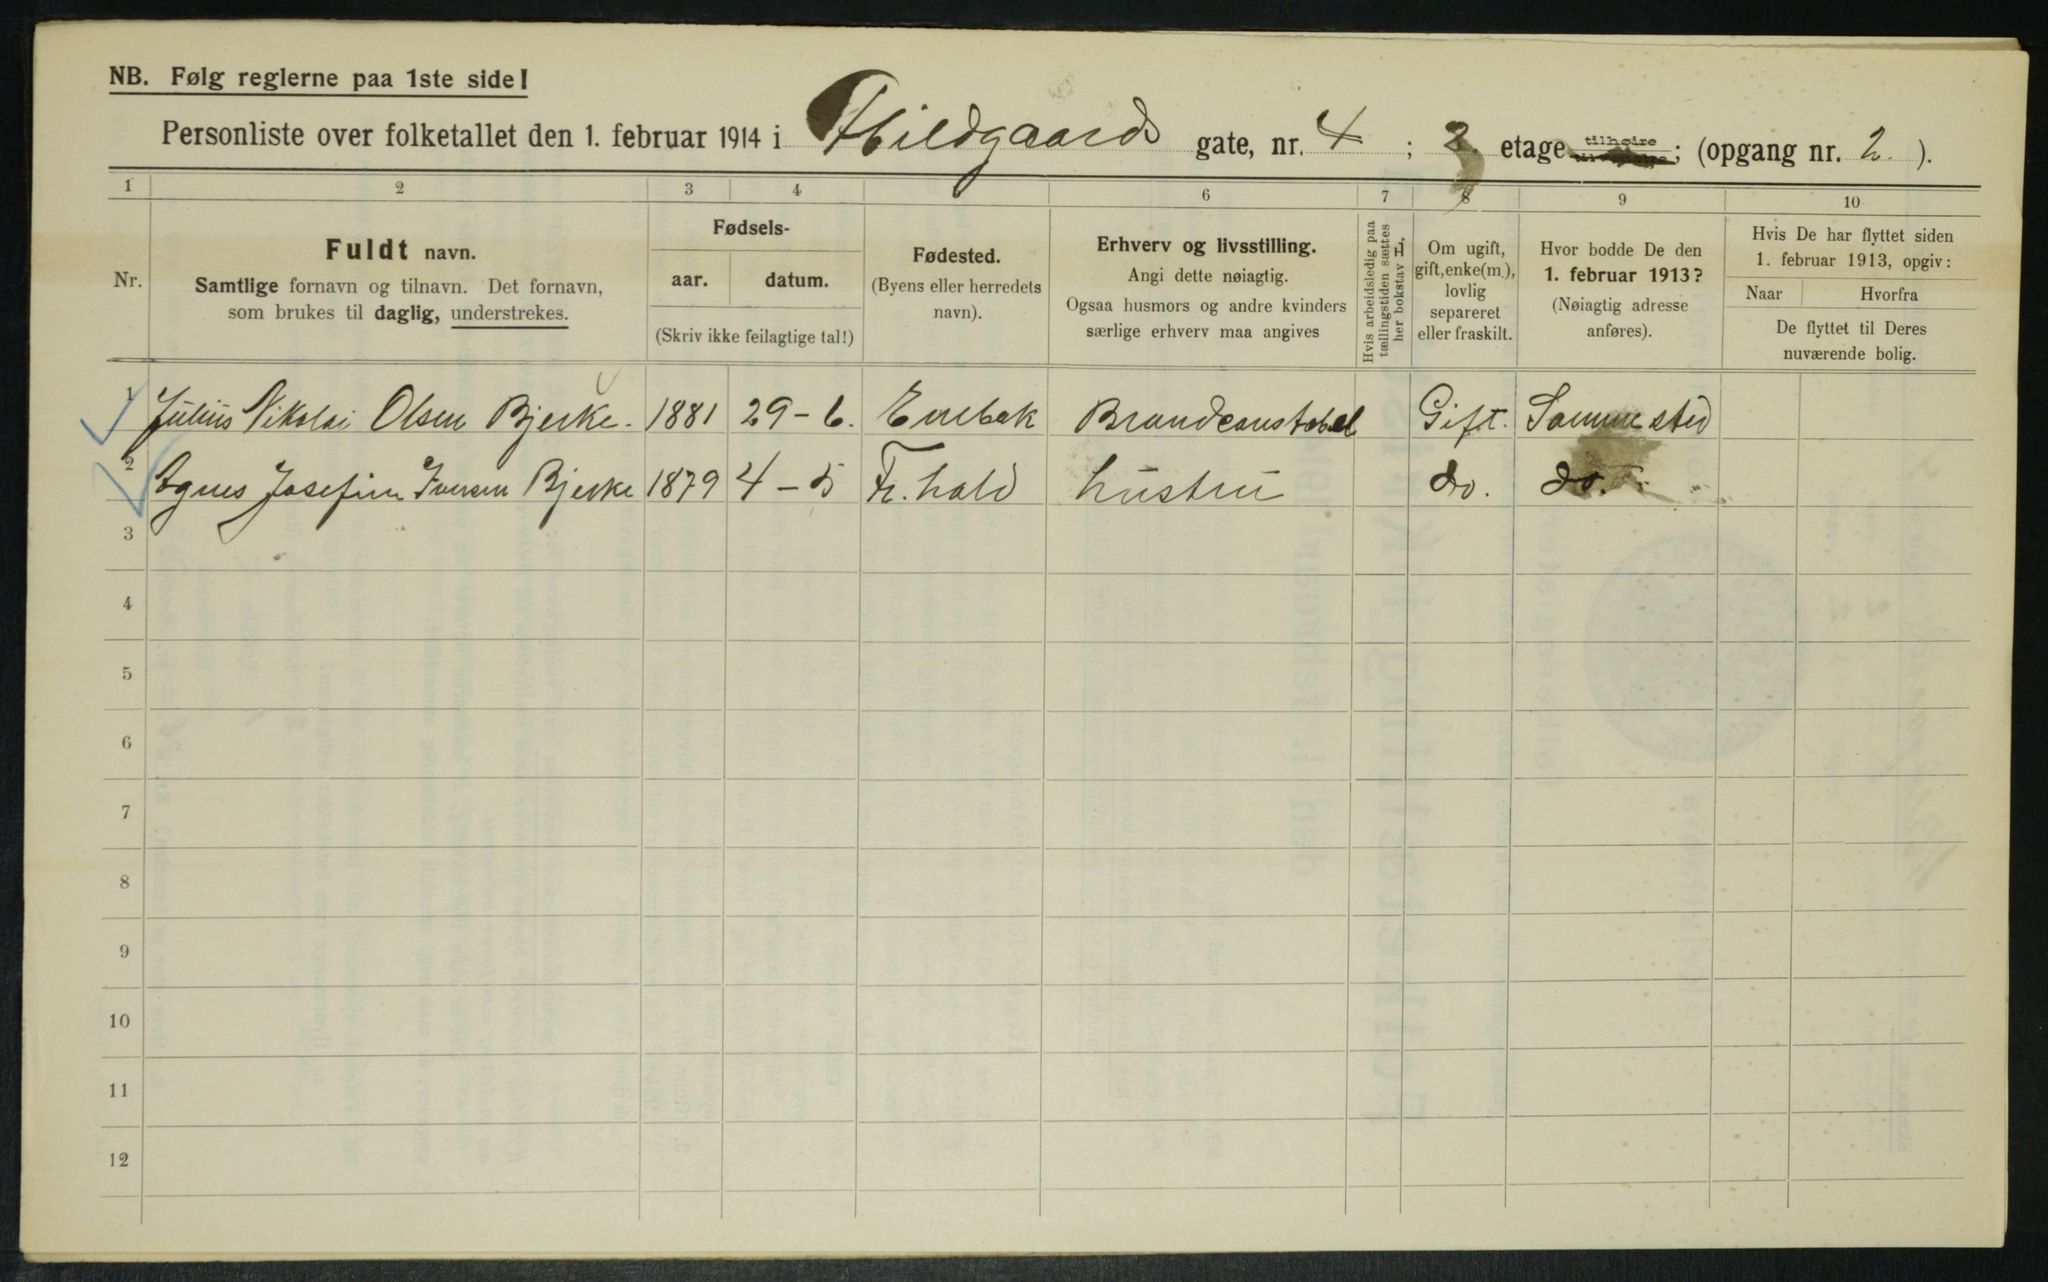 NB. Følg reglerne paa 1ste side!
Personliste over folketallet den 1. februar 1914 i Abildgaards gate, nr. 4 ; 2. etage tilhøire ; (opgang nr. 2. ).
1 2 3 4 5 6 7 8 9 10
Nr.
Fuldt navn.
Samtlige fornavn og tilnavn. Det fornavn,
som brukes til daglig, understrekes.
Fødsels-
aar. datum.
(Skriv ikke feilagtige tal!)
Fødested.
(Byens eller herredets
navn).
Erhverv og livsstilling.
Angi dette nøiagtig.
Ogsaa husmors og andre kvinders
særlige erhverv maa angives
Hvis arbeidsledig paa
tællingstiden sættes
her bokstav H,
Om ugift,
gift, enke(m.),
lovlig
separeret
eller fraskilt.
Hvor bodde De den
1. februar 1913?
(Nøiagtig adresse
anføres).
Hvis De har flyttet siden
1. februar 1913, opgiv:
Naar Hvorfra
De flyttet til Deres
nuværende bolig.
1 Julius Nikolai Olsen Bjerke. 1881 29-6. Enebak Brandconstabel Gift. Samme sted
2 Agnes Josefine Iversen Bjerke 1879 4-5 Fr. hald hustru do. do.
3
4
5
6
7
8
9
10
11
12